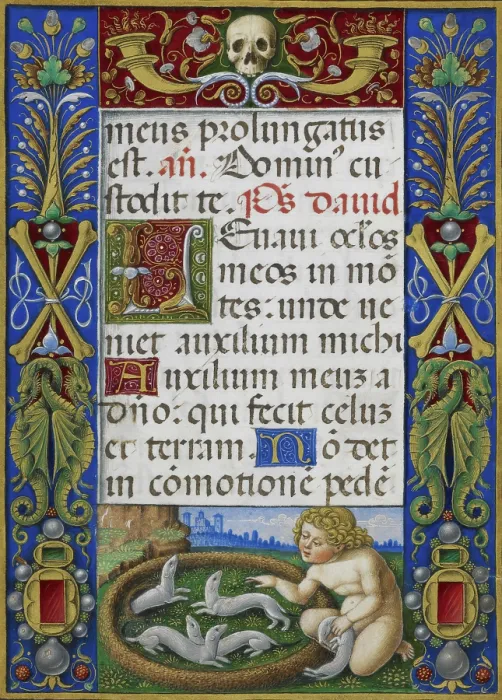 meus prolungatus
est. añ. Domin⁹ cu
stodit te. Ps̄ dauid
Leuaui oclos
meos in mō
tes: unde ue
niet auxilium michi
Auxilium meuz a
dño: qui fecit celuz
et terram. Nō det
in cōmotionē pedē